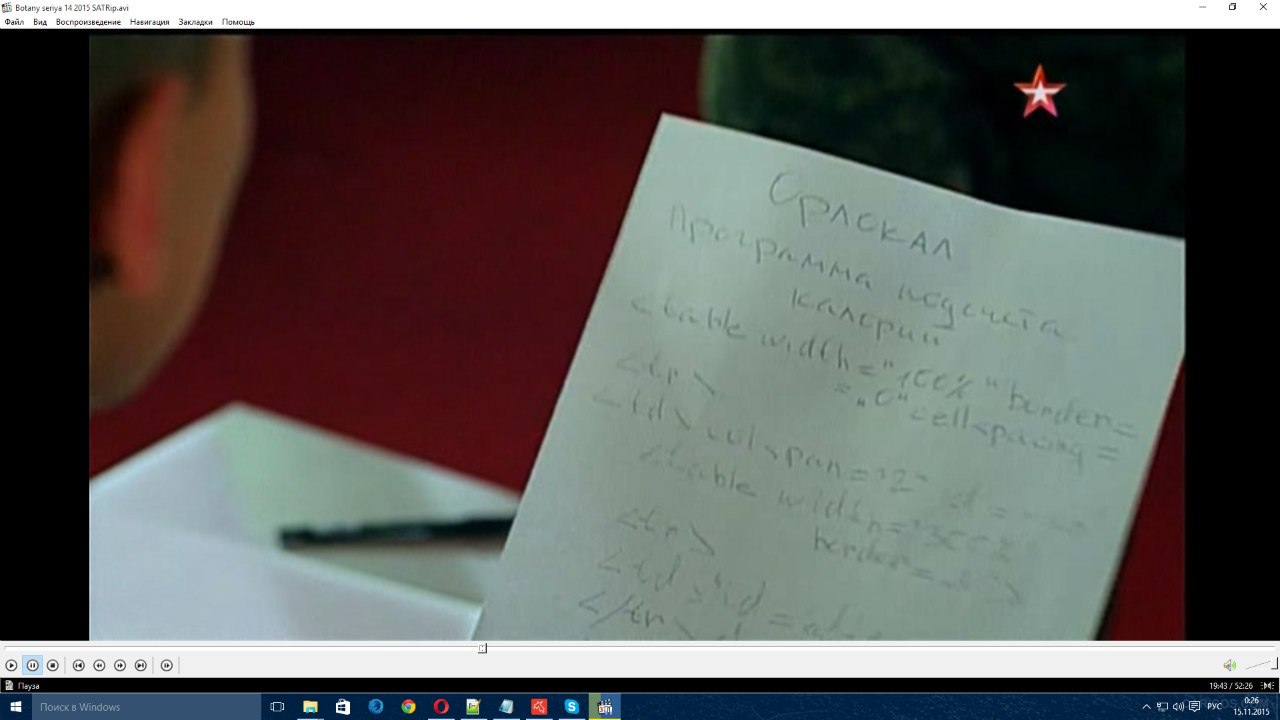 Botany seriya 14 2015 SATRip.avi
Файл Вид Воспроизведение Навигация Закладки Помощь
Срлскал
Программа подсчета
калорий
<table width="100%" border=
="0" cellspacing=
<tr>
<td> colspan="2" d =
<table width=
border=
<tr>
<td id =
</tr>
Пауза
19:43 / 52:26
Поиск в Windows
РУС
0:26
15.11.2015